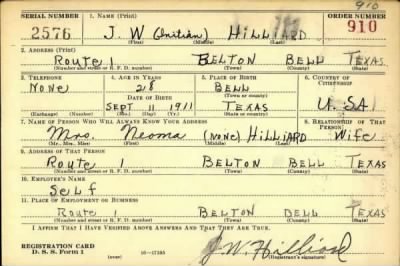 910
SERIAL NUMBER 1. NAME (Print) ORDER NUMBER
2576 J. W (Initian) HILLIARD 910
(First) (Middle) (Last)
2. ADDRESS (Print)
Route 1 BELTON BELL TEXAS
(Number and street or R. F. D. number) (Town) (County) (State)
3. TELEPHONE 4. AGE IN YEARS 5. PLACE OF BIRTH 6. COUNTRY OF CITIZENSHIP
None 28 BELL
DATE OF BIRTH (Town or county)
SEPT 11 1911 TEXAS U.SA
(Exchange) (Number) (Mo.) (Day) (Yr.) (State or country)
7. NAME OF PERSON WHO WILL ALWAYS KNOW YOUR ADDRESS 8. RELATIONSHIP OF THAT PERSON
Mrs. Neoma (NONE) HILLIARD Wife
(Mr., Mrs., Miss) (First) (Middle) (Last)
9. ADDRESS OF THAT PERSON
Route 1 BELTON BELL TEXAS
(Number and street or R. F. D. number) (Town) (County) (State)
10. EMPLOYER'S NAME
SeLf
11. PLACE OF EMPLOYMENT OR BUSINESS
Route 1 BELTON BELL TEXAS
(Number and street or R. F. D. number) (Town) (County) (State)
I AFFIRM THAT I HAVE VERIFIED ABOVE ANSWERS AND THAT THEY ARE TRUE.
REGISTRATION CARD J.W. Hilliard
D. S. S. Form 1 (over) 16-17105 (Registrant's signature)